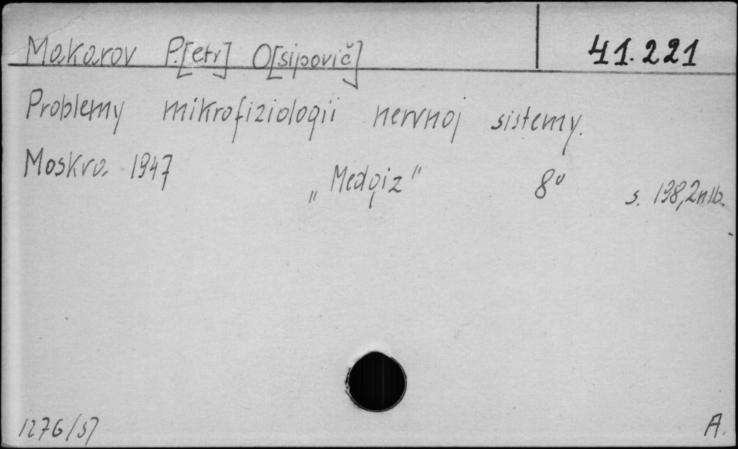 Makarov P.[etr] O[sipovič] 41.221
Problemy mikrofiziologii nervnoj sistemy.
Moskva 1947 „Medgiz" 8° s. 198,2nlb.
1276/57 A.